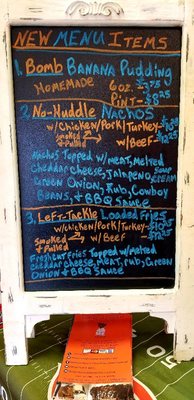 NEW MENU ITEMS
1. Bomb BANANA Pudding
HOMEMADE 6oz.
PINT-
2. No-Huddle Nachos
w/Chicken/Pork/Turkey-
Smoked & Pulled
w/BEEF-
Nachos Topped w/MEAT, MELTED
Cheddar Cheese, Jalapeno, Sour CREAM
GREEN ONION, Rub, Cowboy
BEANS, & BBQ SAUCE
3. Left-Tackle Loaded Fries
w/Chicken/PORK/Turkey-
Smoked & Pulled
w/ BEEF
Fresh Cut Fries Topped w/Melted
Cheddar Cheese, MEAT, Rub, GREEN
ONION & BBQ SAUCE